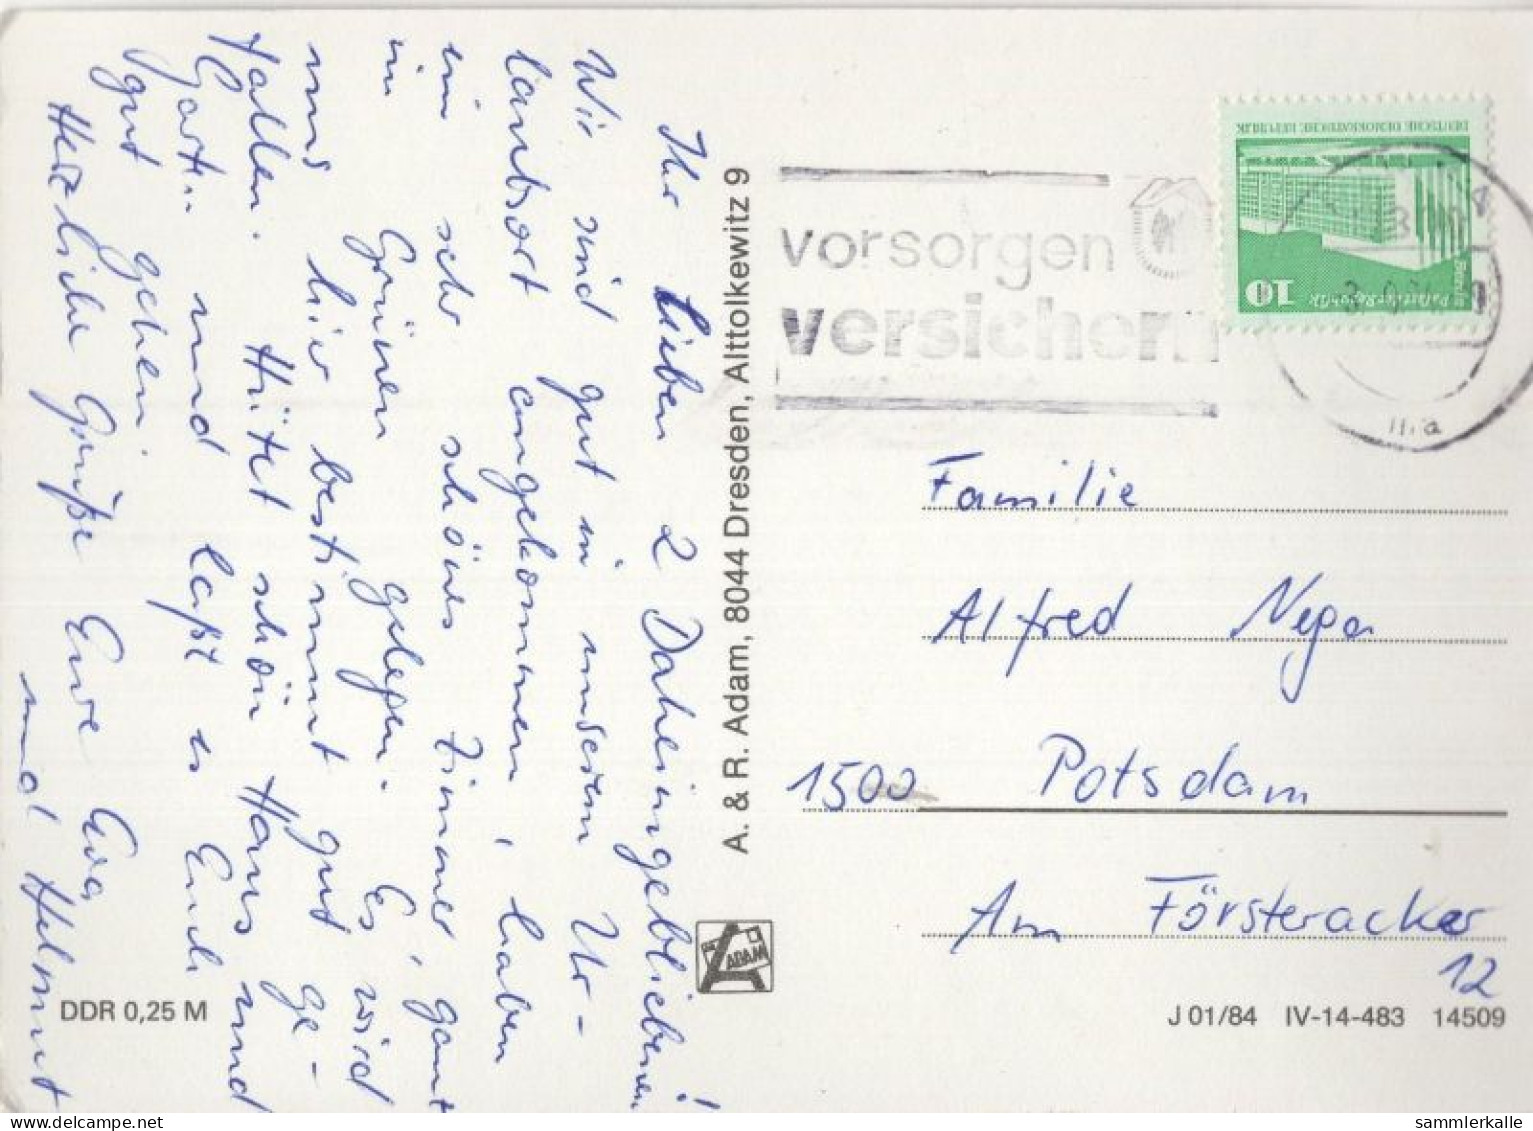 Ihr lieben 2 Daheimgebliebenen!
Wir sind gut in unserem Ur-
laubsort angekommen, haben
ein sehr schönes Zimmer, ganz
im Grünen gelegen. Es wird
uns hier bestimmt gut ge-
fallen. Hütet schön Haus und
Garten und laßt es Euch
gut gehen.
Herzliche Grüße Eure Eva
und Helmut
DDR 0,25 M
A. & R. Adam, 8044 Dresden, Alttolkewitz 9
ADAM
vorsorgen
versichern
DEUTSCHE DEMOKRATISCHE REPUBLIK
Berlin
Palast der Republik
10
Familie
Alfred
1500 Potsdam
Am Försteracker
12
J 01/84 IV-14-483 14509
sammlerkalle
www.delcampe.net